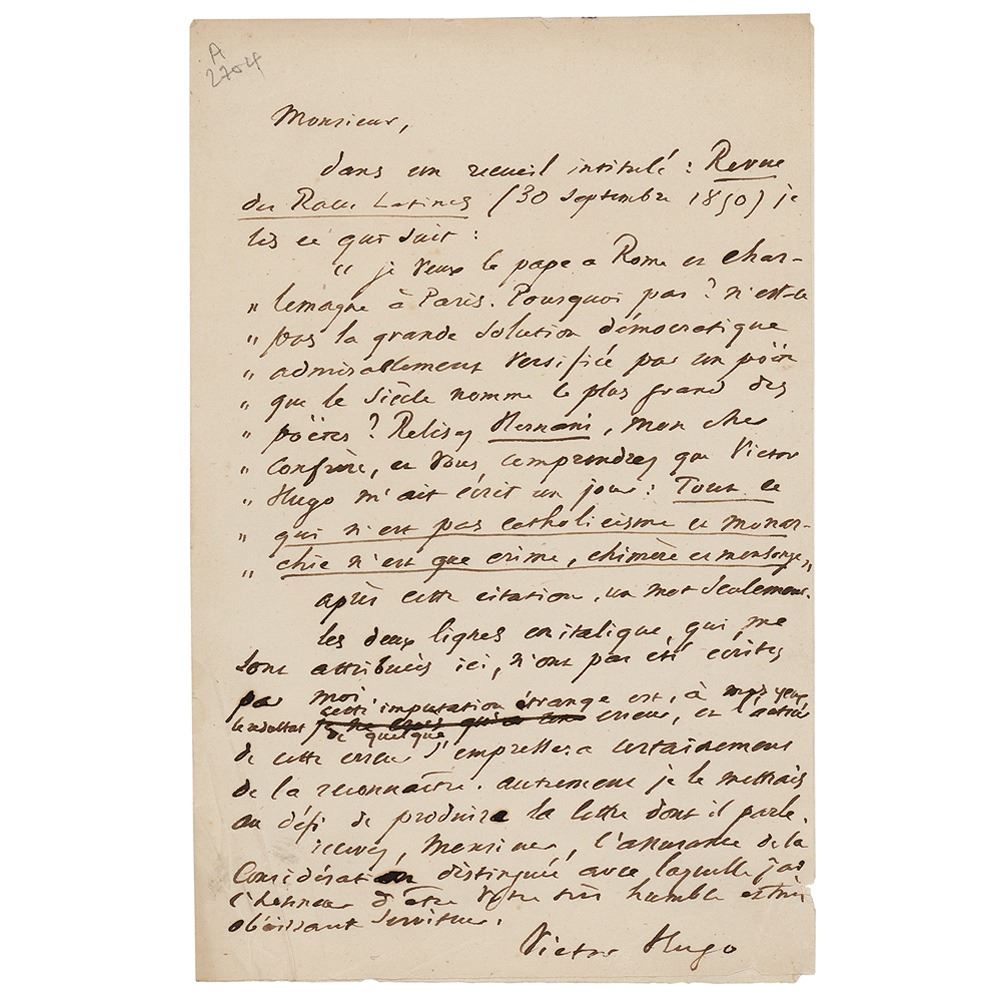 A
2704
Monsieur,
dans un recueil intitulé : Revue
des Races Latines (30 septembre 1850) je
lis ce qui suit :
“ je veux le pape a Rome et char-
„ lemagne à Paris. Pourquoi pas ? n'est-ce
„ pas la grande solution démocratique
„ admirablement versifiée par un poëte
„ que le siècle nomme le plus grand des
„ poëtes ? Relisez Hernani, mon cher
„ confrère, et vous comprendrez que Victor
„ Hugo m'ait écrit un jour : Tout ce
„ qui n'est pas catholicisme et monar-
„ chie n'est que crime, chimère et mensonge „
après cette citation, un mot seulement.
les deux lignes en italique, qui me
sont attribuées ici, n'ont pas été écrites
par moi
cette imputation étrange est, à mes yeux
le résultat de quelque erreur, et l'auteur
de cette erreur s'empressera certainement
de la reconnaître. autrement je le mettrais
au défi de produire la lettre dont il parle.
recevez, Monsieur, l'assurance de la
considération distinguée avec laquelle j'ai
l'honneur d'être votre très humble et très
obéissant serviteur.
Victor Hugo